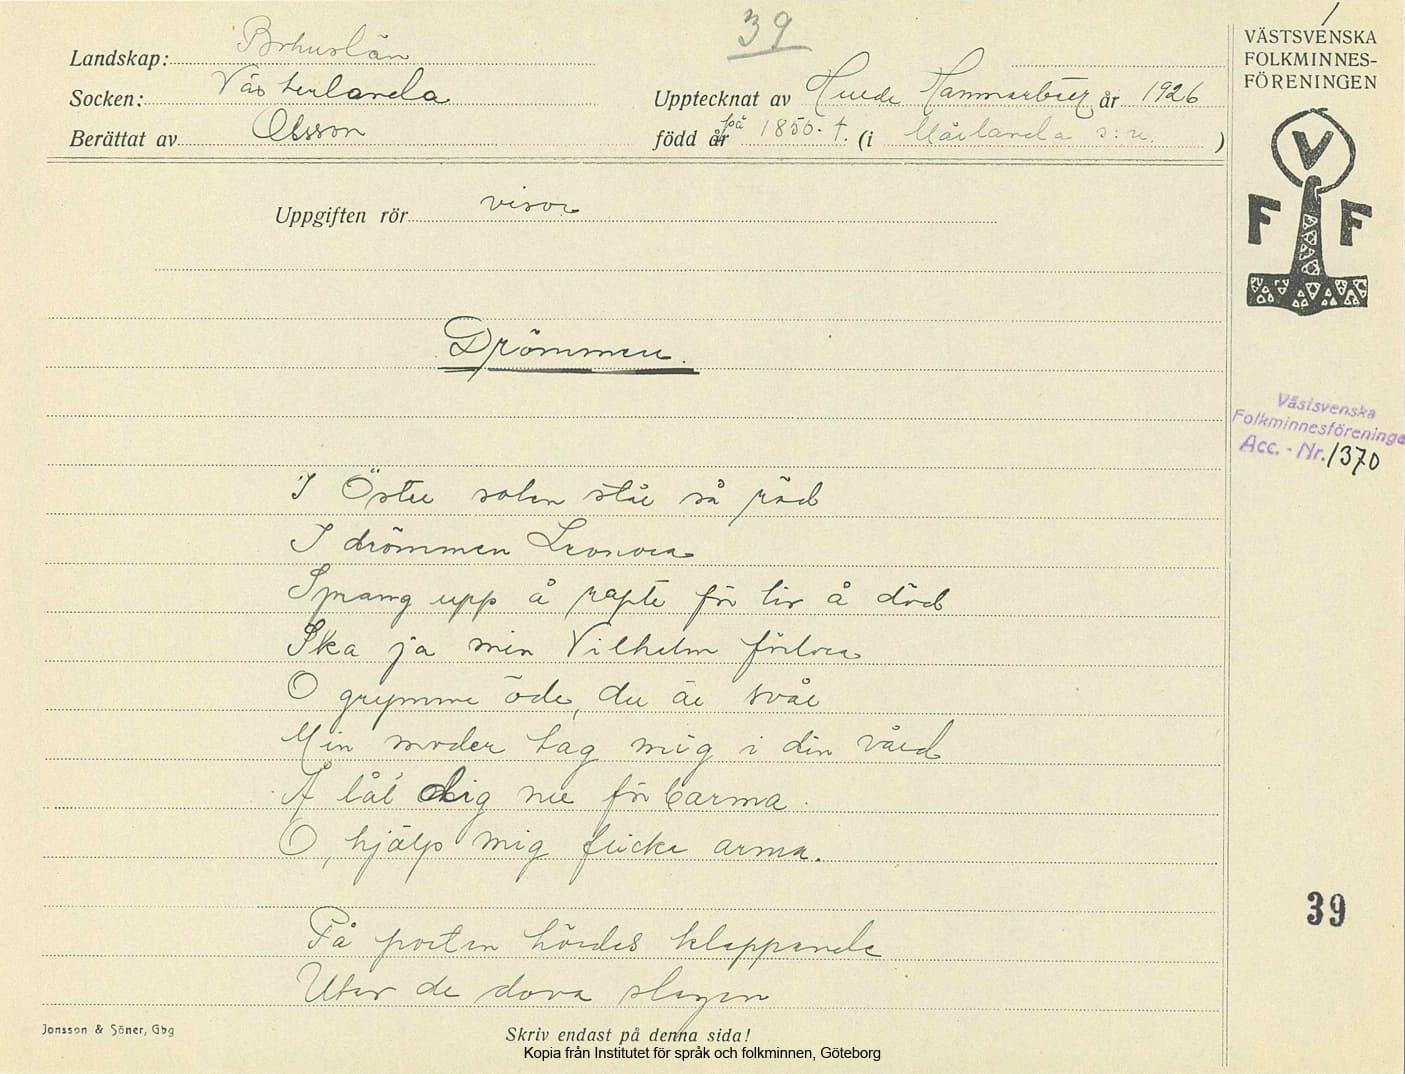 39
Landskap: Bohuslän
Socken: Västerlanda
Berättat av Olsson
Upptecknat av Hammarberg år 1926
född år på 1850-t. (i Mårlanda s:n. )
VÄSTSVENSKA
FOLKMINNES-
FÖRENINGEN
V
F F
Uppgiften rör visor
Drömmen.
Västsvenska
Folkminnesföreninge
Acc. - Nr. 1370
I Öster solen står så röd
I drömmen Leonora
Sprang upp å rapte för liv å död
Ska ja min Vilhelm förlora
O grymme öde, du är svår
Min moder tag mig i din vård
Å låt dig nu förbarma
O, hjälp mig flicka arma.
39
På porten hördes klappande
Utav de dova slagen
Jonsson & Söner, Gbg
Skriv endast på denna sida!
Kopia från Institutet för språk och folkminnen, Göteborg